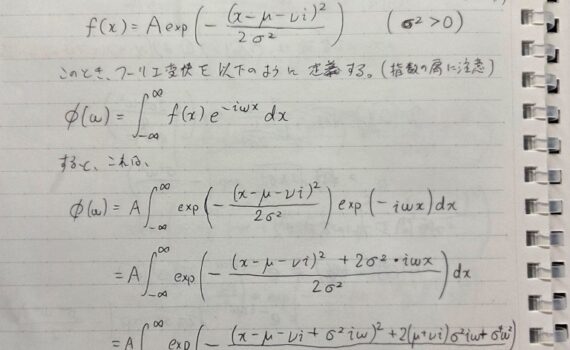 f(x) = A exp(-(x-μ-νi)²/2σ²) (σ²>0)
このとき、フーリエ変換を以下のように定義する。(指数の肩に注意)
φ(ω) = ∫_{-∞}^{∞} f(x) e^{-iωx} dx
すると、これは、
φ(ω) = A∫_{-∞}^{∞} exp(-(x-μ-νi)²/2σ²) exp(-iωx)dx
= A∫_{-∞}^{∞} exp(-((x-μ-νi)² + 2σ²・iωx)/2σ²) dx
= A∫^{∞} exp(-(x-μ-νi+σ²iω)² + 2(μ+νi)σ²iω + σ⁴ω²)